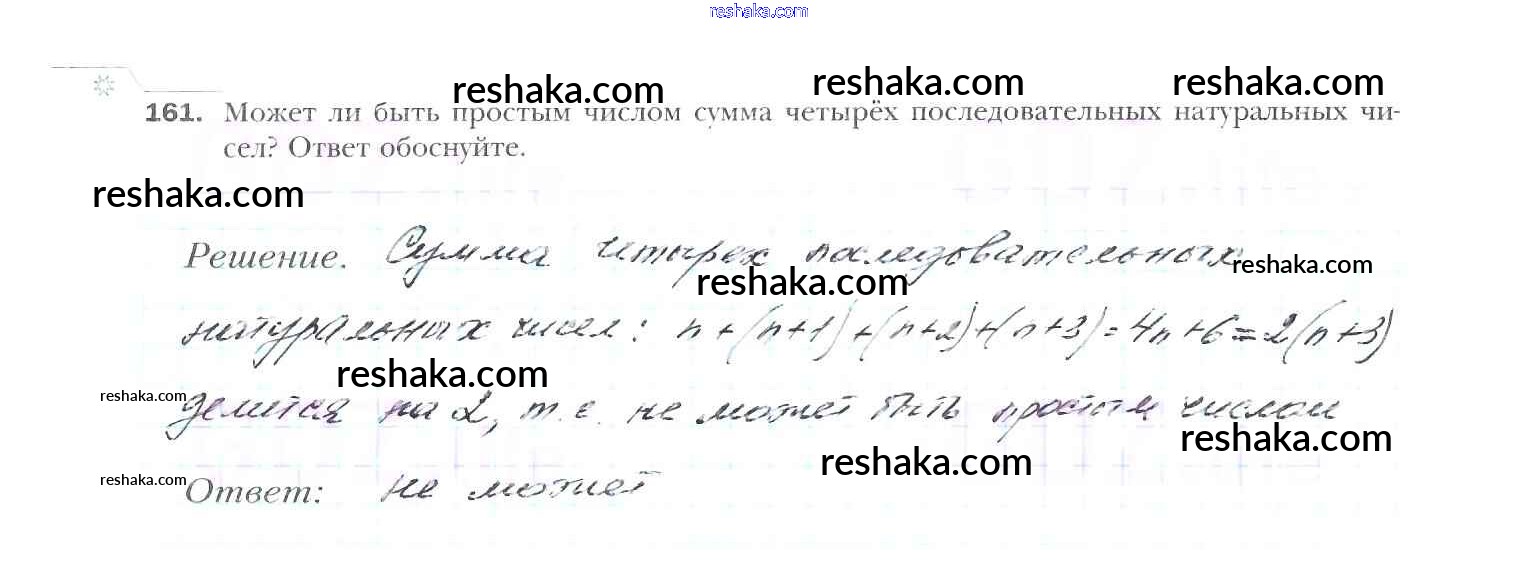 reshaka.com
reshaka.com reshaka.com reshaka.com
161. Может ли быть простым числом сумма четырёх последовательных натуральных чи-
сел? Ответ обоснуйте.
reshaka.com
Решение. Сумма четырех последовательных
reshaka.com reshaka.com
натуральных чисел: n+(n+1)+(n+2)+(n+3)=4n+6=2(n+3)
reshaka.com
reshaka.com
делится на 2, т.е. не может быть простым числом
reshaka.com
reshaka.com
reshaka.com
Ответ: не может